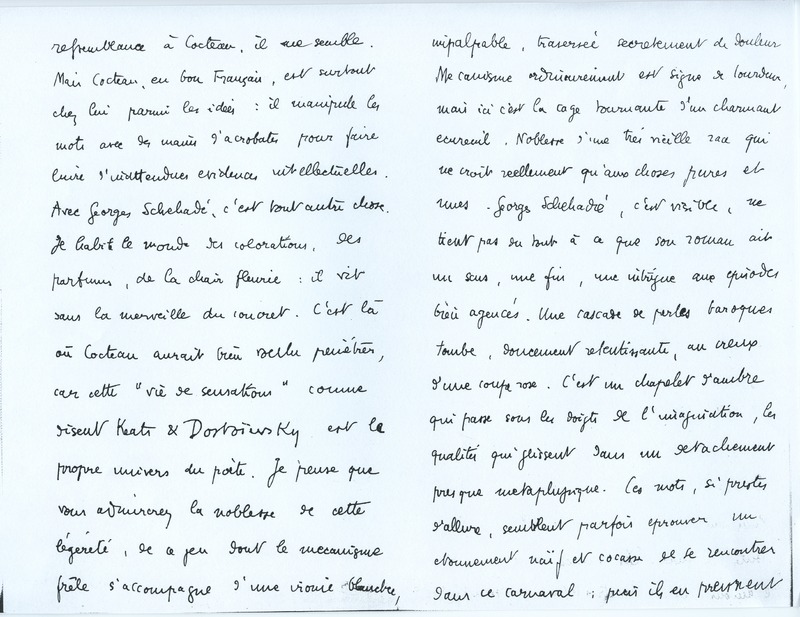 ressemblance à Cocteau, il me semble.
Mais Cocteau, en bon Français, est surtout
chez lui parmi les idées : il manipule les
mots avec des mains d'acrobates pour faire
luire d'inattendues evidences intellectuelles.
Avec Georges Schehadé, c'est tout autre chose.
Je habite le monde des colorations, des
parfums, de la chair fleurie : il vit
dans la merveille du concret. C'est là
où Cocteau aurait bien voulu pénétrer,
car cette "vie de sensations" comme
disent Keats & Dostoïewsky est le
propre univers du poète. Je pense que
vous admirerez la noblesse de cette
légèreté, de ce jeu dont le mecanisme
frêle s'accompagne d'une ironie blanche,
impalpable, traversée secretement de douleur
Mecanisme ordinairement est signe de lourdeur,
mais ici c'est la cage tournante d'un charmant
ecureuil. Noblesse d'une très vieille race qui
ne croit reellement qu'aux choses pures et
nues. Georges Schehadé, c'est visible, ne
tient pas du tout à ce que son roman ait
un sens, une fin, une intrigue aux episodes
bien agencés. Une cascade de perles baroques
tombe, doucement retentissante, au creux
d'une coupe rose. C'est un chapelet d'ambre
qui passe sous les doigts de l'imagination, les
qualités qui glissent dans un detachement
presque metaphysique. Ces mots, si prestes
d'allure, semblent parfois eprouver un
etonnement naïf et cocasse de se rencontrer
dans ce carnaval : puis ils en prennent